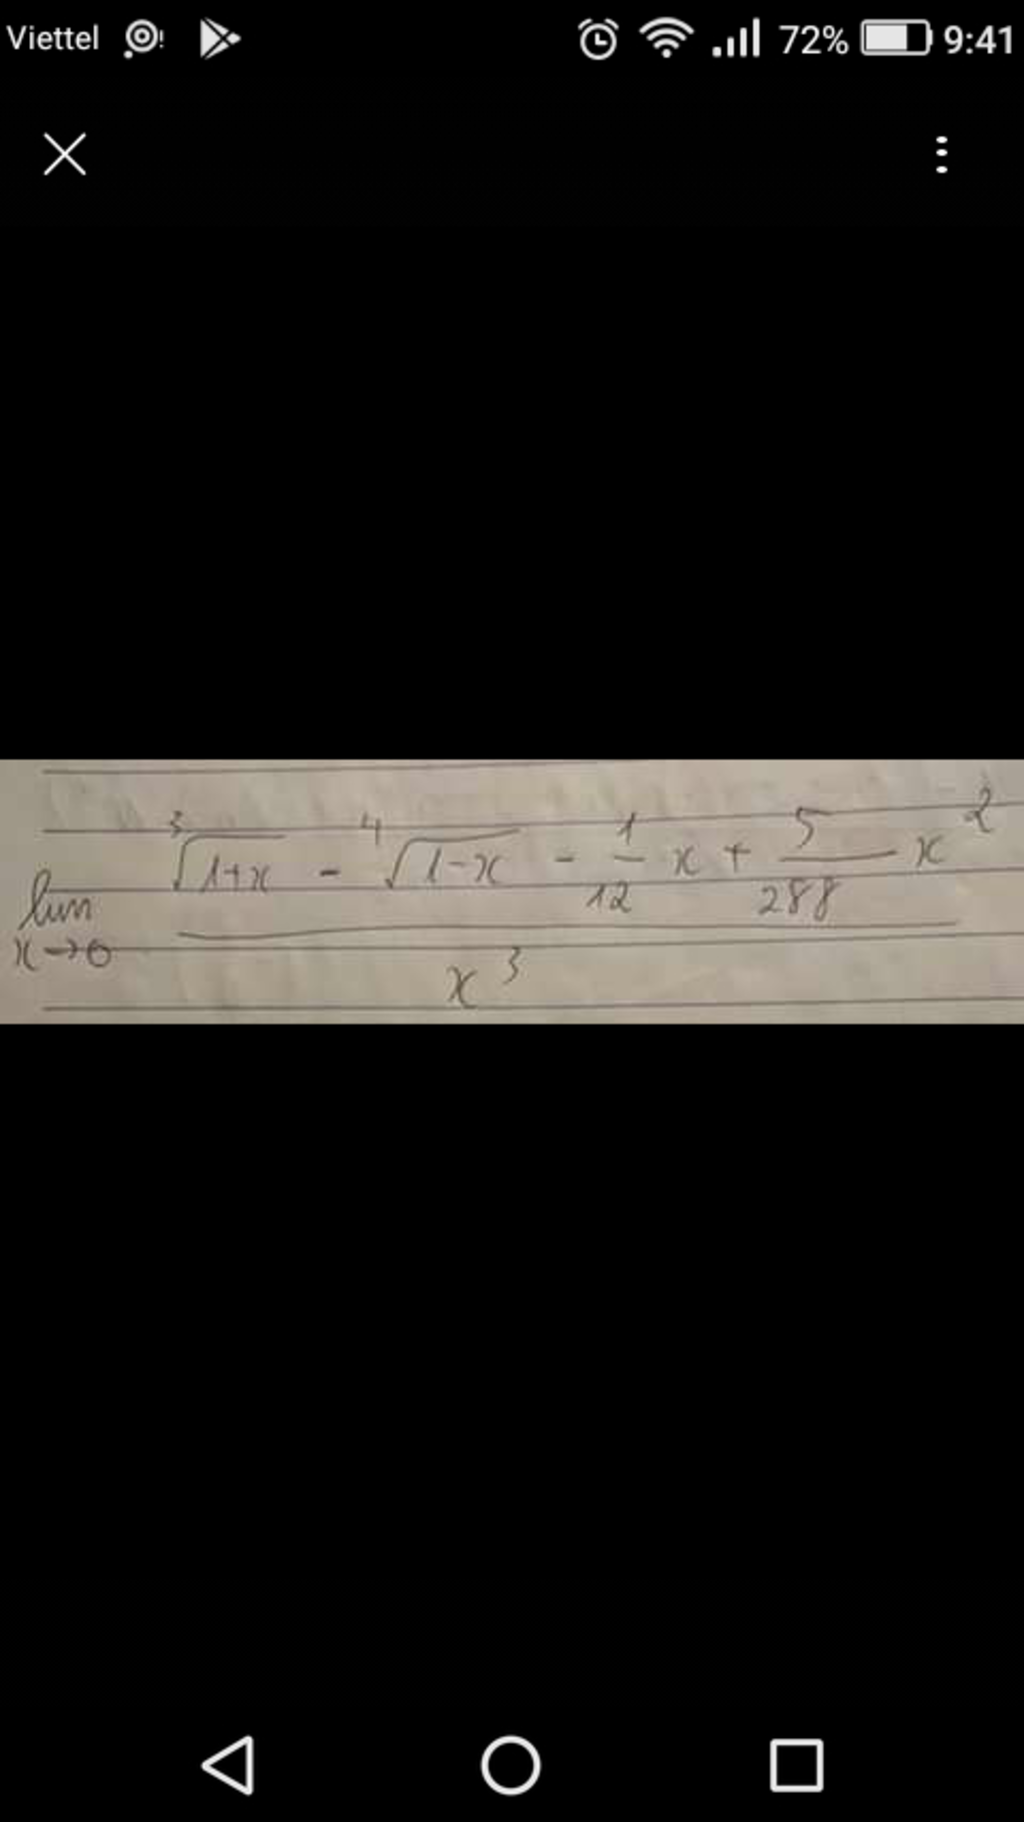 Viettel 72% 9:41
lim x→0 (∛(1+x) - ∜(1-x) - 1/12 x + 5/288 x²) / x³